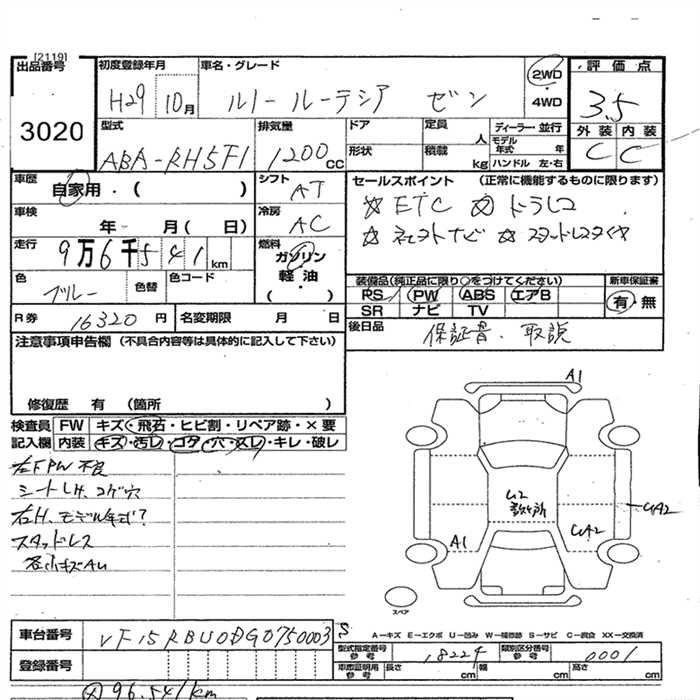 [2119]
出品番号 初度登録年月 車名・グレード 評価点
3020 H29 10月 ルノー ルーテシア ゼン 2WD・4WD 3.5
外装 内装
C C
型式 排気量 ドア 定員 人 ディーラー・並行
ABA-RH5F1 1200cc 形状 積載 kg モデル年式 年 ハンドル 左・右
車歴 自家用・( ) シフト AT セールスポイント (正常に機能するものに限ります)
☆ETC ☆ドラレコ
車検 年 月( 日) 冷房 AC
☆ ナビ ☆スタッドレスタイヤ
走行 9万6千541km 燃料 ガソリン・軽油( )
色 ブルー 色替 色コード
装備品(純正品に限り○をつけてください) 新車保証書
PS PW ABS エアB 有・無
SR ナビ TV
R券 16320円 名変期限 月 日
後日品 保証書、取説
注意事項申告欄(不具合内容等は具体的に記入して下さい)
修復歴 有 (箇所 )
検査員記入欄 FW キズ・飛石・ヒビ割・リペア跡・×要
内装 キズ・汚レ・コゲ・穴・ヌレ・キレ・破レ
PW不良
シートLH、コゲ穴
右H、モデル年式?
スタッドレス
小キズAU
A1
A1
スペア
A-キズ E-エクボ U-凹み W-補修跡 S-サビ C-腐食 XX-交換済
車台番号 VF15RBU0DG0750003 S
型式指定番号 参考 18224 類別区分番号 参考 0001
登録番号
車庫証明用 参考 長さ cm 幅 cm 高さ cm